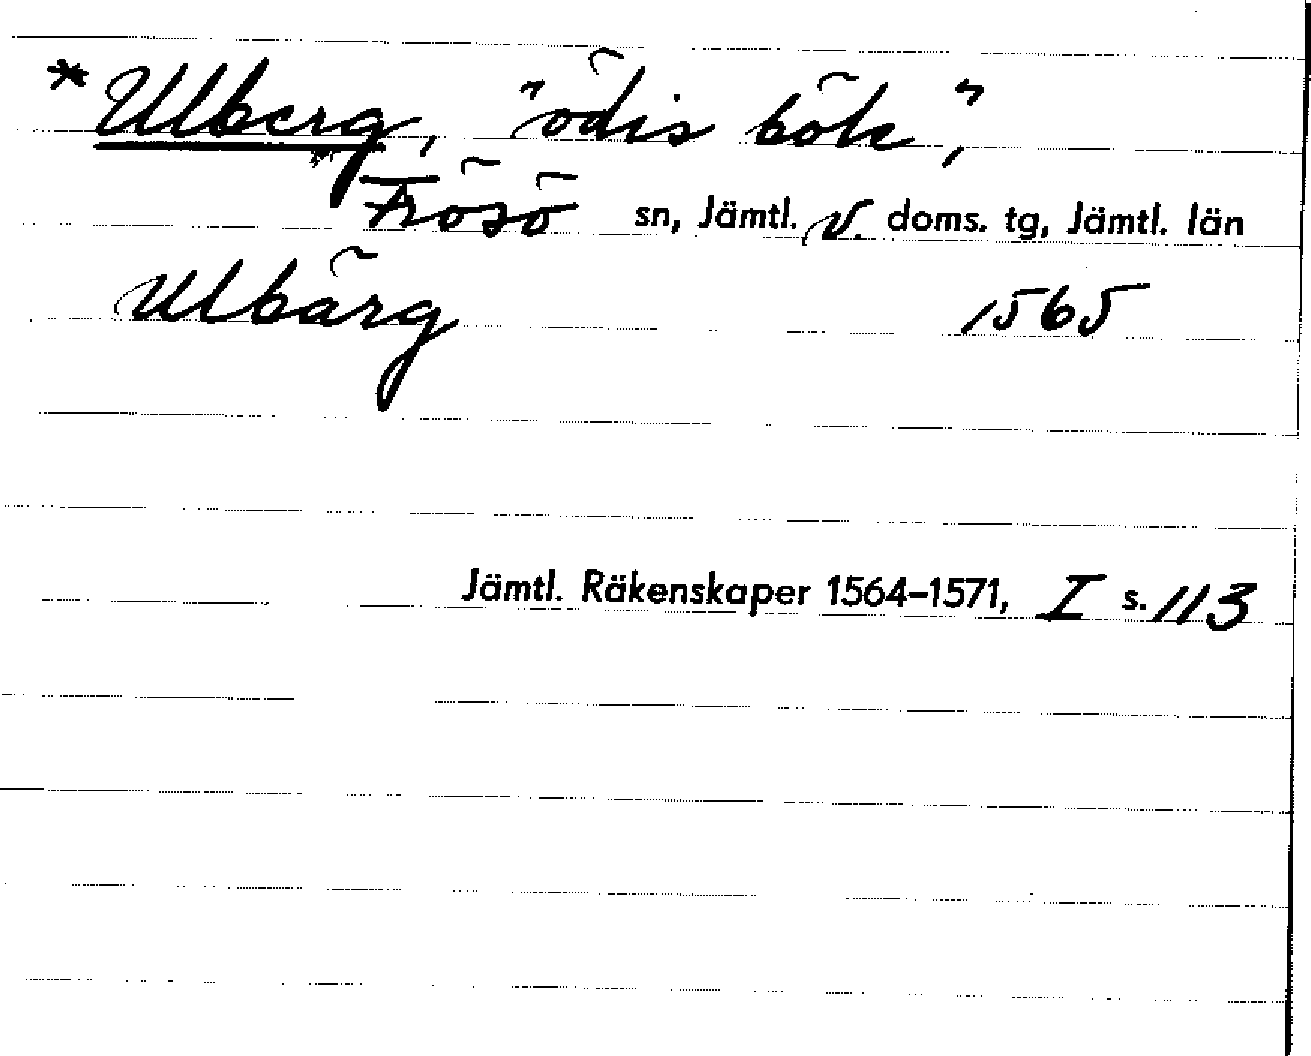 *Ulberg, "ödis böle",
Frösö sn, Jämtl. v. doms. tg, Jämtl. län
Ulbärg 1565
Jämtl. Räkenskaper 1564–1571, I s. 113